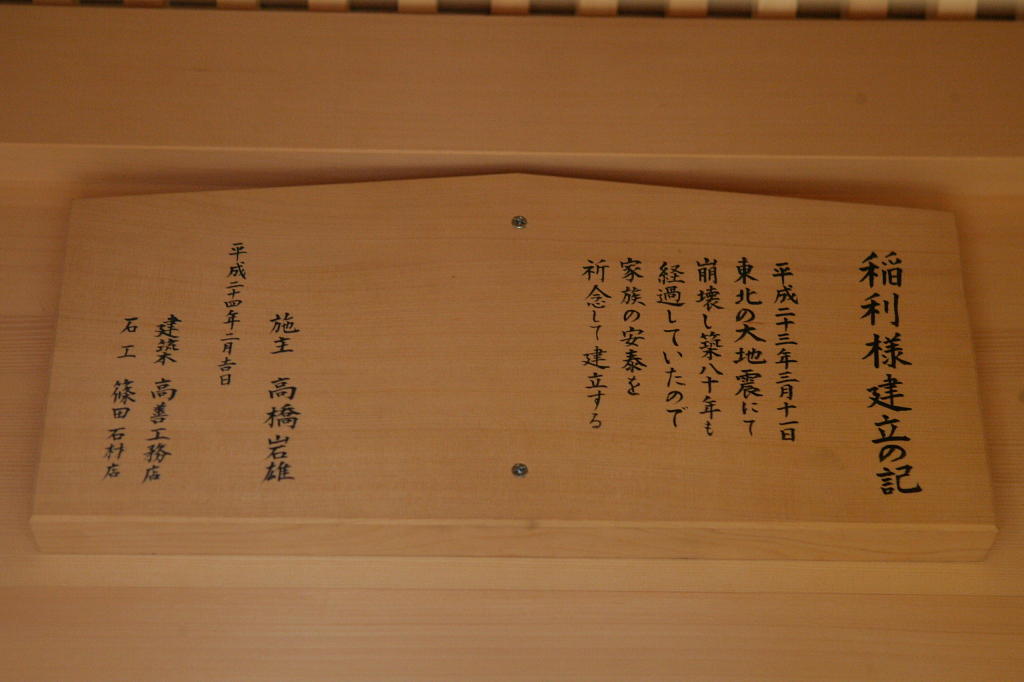 稲利様建立の記
平成二十三年三月十一日
東北の大地震にて
崩壊し築八十年も
経過していたので
家族の安泰を
祈念して建立する
施主 高橋岩雄
平成二十四年二月吉日
建築 高善工務店
石工 篠田石材店